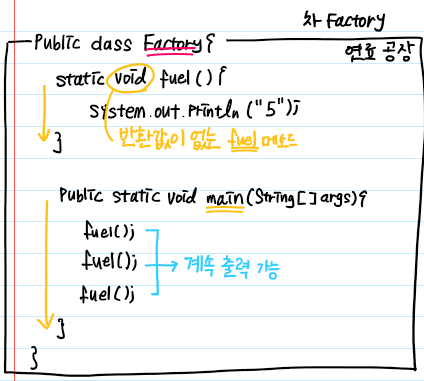 차 Factory
Public class Factory{
연료 공장
static void fuel(){
System.out.Println("5");
반환값이 없는 fuel 메소드
}
Public static void main(String[] args){
fuel();
fuel();
계속 출력 가능
fuel();
}
}